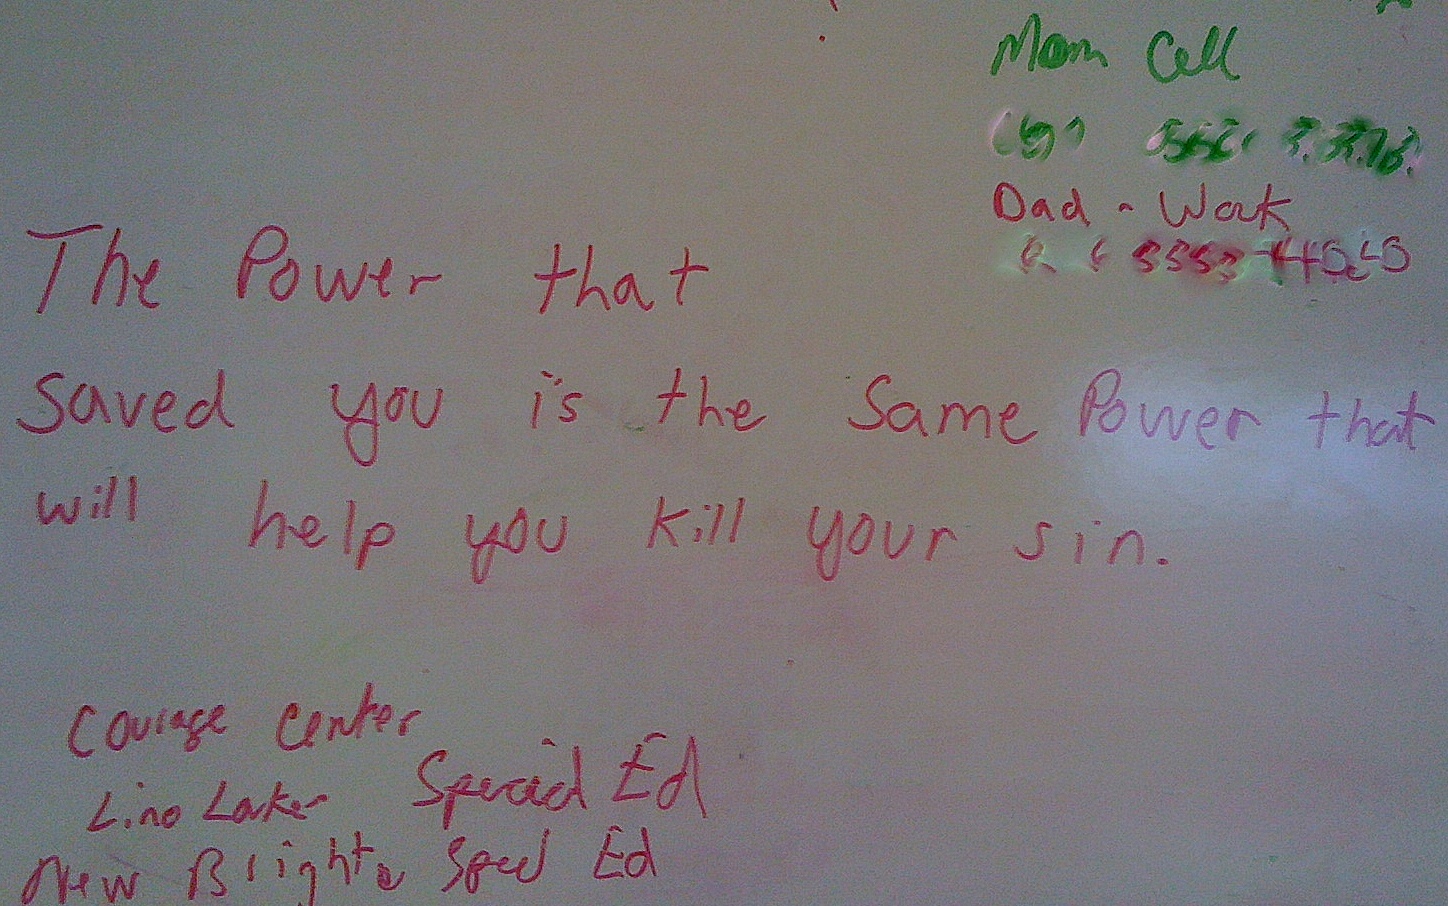 Mom Cell
Dad - Work
The Power that
saved you is the Same Power that
will help you kill your sin.
Courage Center
Lino Special Ed
New Ed